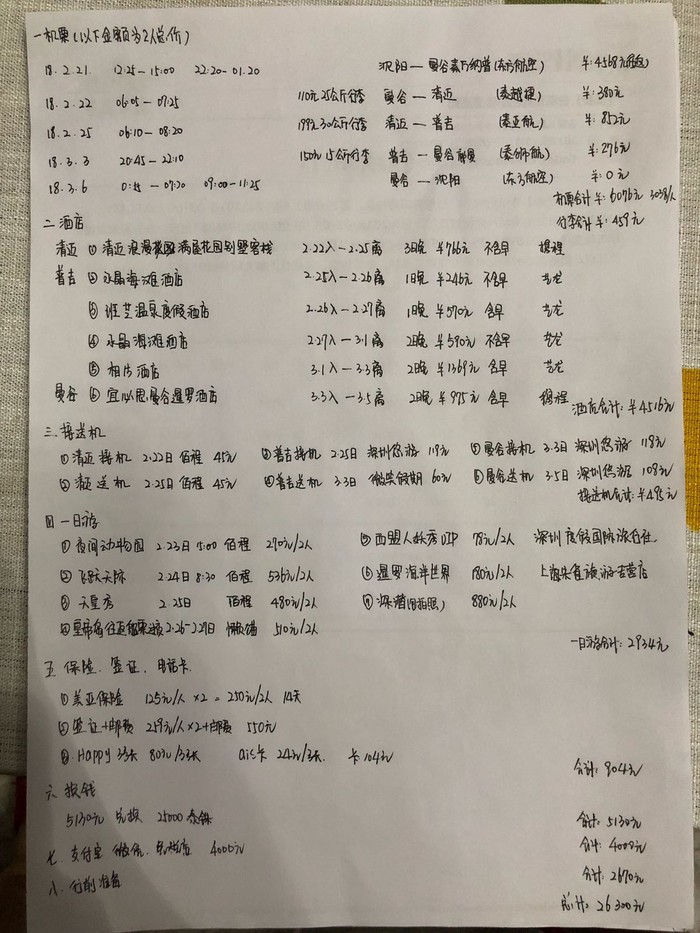 一.机票(以下金额为2人总价)
18.2.21. 12:25-15:00 22:20-01.20 沈阳—曼谷素万纳普(东方航空) ¥:4568元
18.2.22 06:05-07:25 110元25公斤行李 曼谷—清迈 (泰越捷) ¥:380元
18.2.25 06:10-08:20 199元30公斤行李 清迈—普吉 (泰亚航) ¥:852元
18.3.3 20:45-22:10 150元15公斤行李 普吉—曼谷廊曼 (泰狮航) ¥:276元
18.3.6 0:15-07:30 09:00-11:25 曼谷—沈阳 (东方航空) ¥:0元
机票合计¥:6076元 3038/人
行李合计¥:459元
二.酒店
清迈 ①清迈浪漫满屋花园别墅客栈 2.22入—2.25离 3晚 ¥766元 不含早 携程
普吉 ②水晶海滩酒店 2.25入—2.26离 1晚 ¥246元 不含早 艺龙
③班芝温泉度假酒店 2.26入—2.27离 1晚 ¥570元 含早 艺龙
④水晶海滩酒店 2.27入—3.1离 2晚 ¥590元 不含早 艺龙
⑤相片酒店 3.1入—3.3离 2晚 ¥1369元 含早 艺龙
曼谷 ⑥宜必思曼谷暹罗酒店 3.3入—3.5离 2晚 ¥975元 含早 携程
酒店合计:¥4516元
三.接送机
①清迈接机 2.22日 佰程 45元 ③普吉接机 2.25日 深圳悠游 119元 ⑤曼谷接机 3.3日 深圳悠游 118元
②清迈送机 2.25日 佰程 45元 ④普吉送机 3.3日 微笑假期 60元 ⑥曼谷送机 3.5日 深圳悠游 108元
接送机合计:¥495元
四 一日游
①夜间动物园 2.23日 15:00 佰程 270元/2人 ⑤西盟人妖秀VIP 78元/2人 深圳度假国际旅行社
②飞跃天际 2.24日 8:30 佰程 536元/2人 ⑥暹罗海洋世界 180元/2人
③天皇秀 2.25日 佰程 480元/2人 ⑦深潜(旧拍照) 880元/2人
④皇帝 2.26-2.27日 懒猫 510元/2人
一日游合计:2934元
五.保险.签证.电话卡
①美亚保险 125元/人×2=250元/2人 14天
②签证+邮费 259元/人×2+邮费 550元
③.Happy 3张 80元/3张 ais卡 24元/3张. 卡104元
合计:904元
六.换钱
5130元 兑换 25000泰铢
合计:5130元
七.支付宝 微信. 4000元
合计:4000元
八.行前准备
合计:2670元
总计:26300元